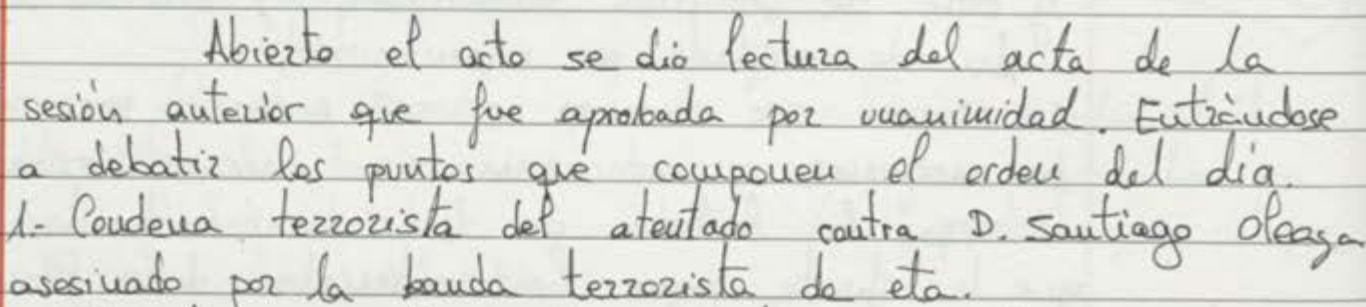 Abierto el acto se dió lectura del acta de la
sesión anterior que fue aprobada por unanimidad. Entràndose
a debatir los puntos que componen el orden del dia.
1.- Condena terrorista del atentado contra D. Santiago Oleaga
asesinado por la banda terrorista de eta.